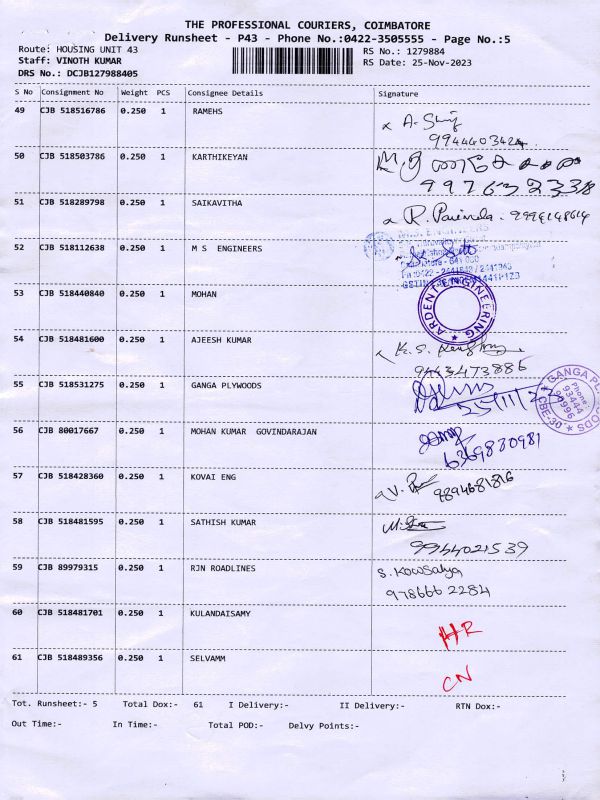 THE PROFESSIONAL COURIERS, COIMBATORE
Delivery Runsheet - P43 - Phone No.:0422-3505555 - Page No.:5
Route: HOUSING UNIT 43
RS No.: 1279884
Staff: VINOTH KUMAR
RS Date: 25-Nov-2023
DRS No.: DCJB127988405
S No Consignment No Weight PCS Consignee Details Signature
49 CJB 518516786 0.250 1 RAMEHS
x A.
9944403424
50 CJB 518503786 0.250 1 KARTHIKEYAN
51 CJB 518289798 0.250 1 SAIKAVITHA
R.
52 CJB 518112638 0.250 1 M S ENGINEERS
53 CJB 518440840 0.250 1 MOHAN
ARDENT ENGINEERING
54 CJB 518481600 0.250 1 AJEESH KUMAR
K. S.
9443473886
55 CJB 518531275 0.250 1 GANGA PLYWOODS
25/11/2
GANGA PL
Phone:
93444
94996
OODS
CBE-30
56 CJB 80017667 0.250 1 MOHAN KUMAR GOVINDARAJAN
6369830981
57 CJB 518428360 0.250 1 KOVAI ENG
V. 9894681816
58 CJB 518481595 0.250 1 SATHISH KUMAR
9944021539
59 CJB 89979315 0.250 1 RJN ROADLINES
S. Kowsalya
978666 2284
60 CJB 518481701 0.250 1 KULANDAISAMY
HR
61 CJB 518489356 0.250 1 SELVAMM
CN
Tot. Runsheet:- 5 Total Dox:- 61 I Delivery:- II Delivery:- RTN Dox:-
Out Time:- In Time:- Total POD:- Delvy Points:-